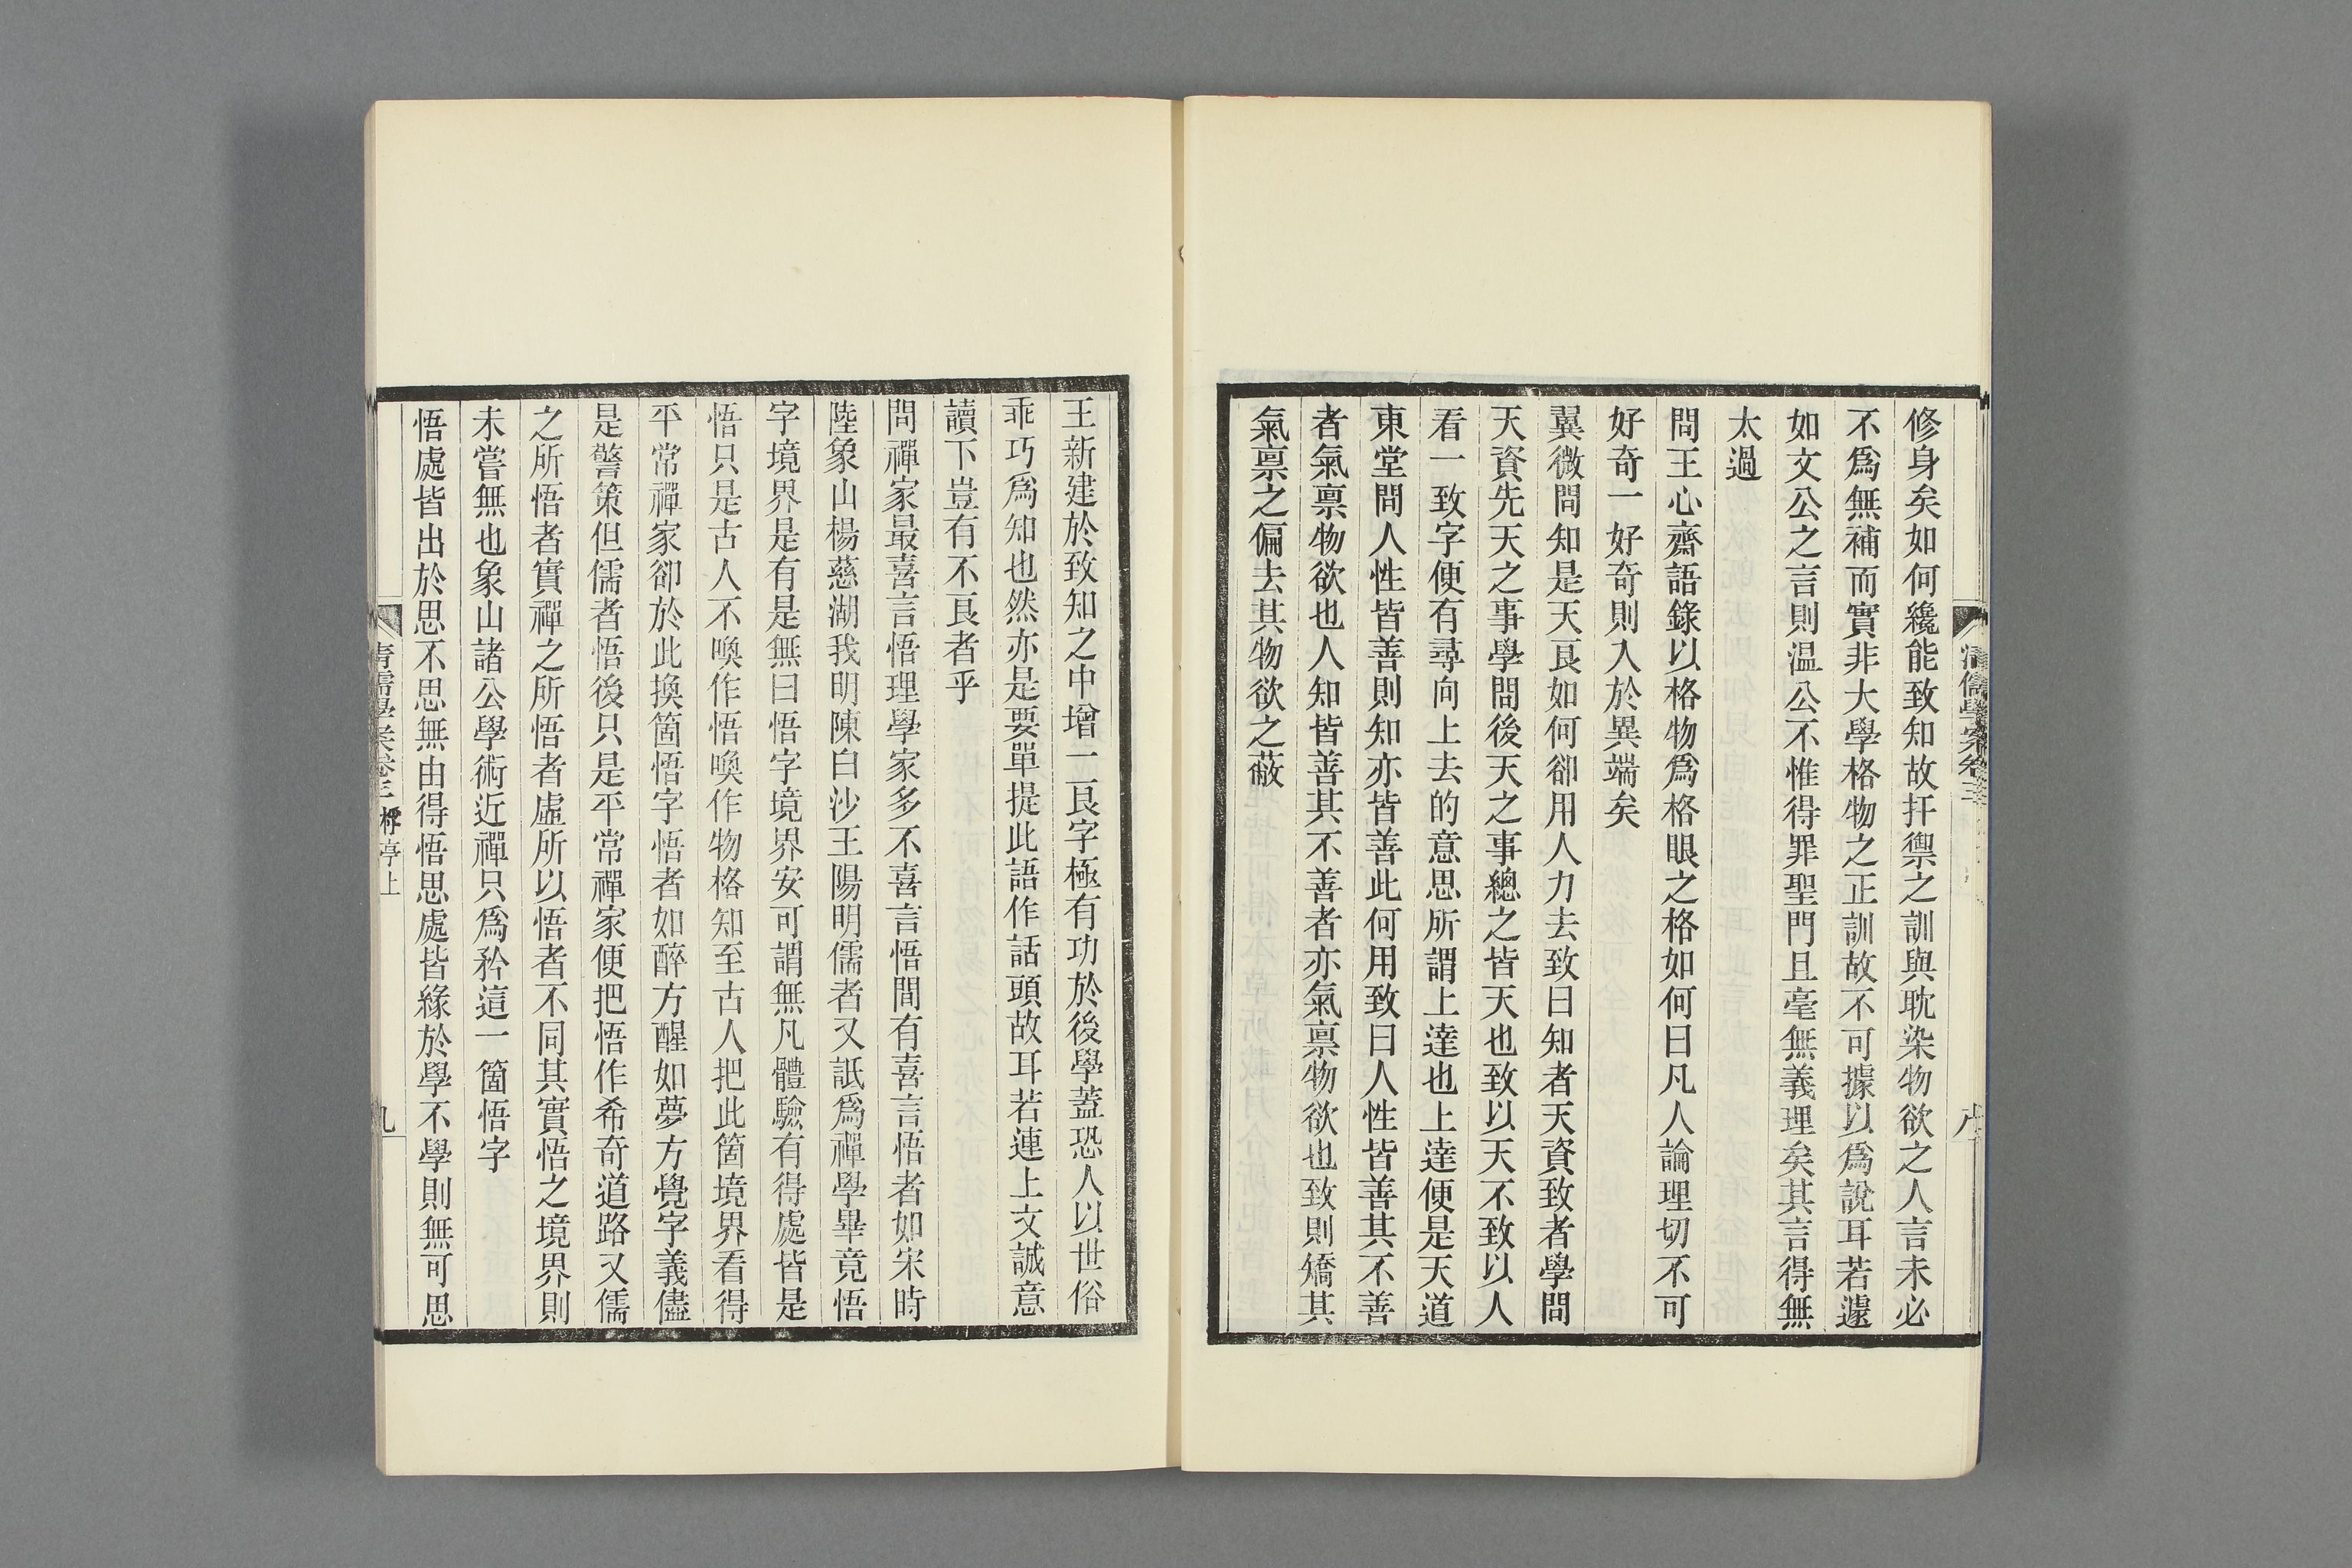 清儒學案卷三
八
修身矣如何纔能致知故扞禦之訓與耽染物欲之人言未必
不爲無補而實非大學格物之正訓故不可據以爲說耳若遽
如文公之言則温公不惟得罪聖門且毫無義理矣其言得無
太過
問王心齋語錄以格物爲格眼之格如何曰凡人論理切不可
好奇一好奇則入於異端矣
翼微問知是天良如何卻用人力去致曰知者天資致者學問
天資先天之事學問後天之事總之皆天也致以天不致以人
看一致字便有尋向上去的意思所謂上達也上達便是天道
東堂問人性皆善則知亦皆善此何用致曰人性皆善其不善
者氣禀物欲也人知皆善其不善者亦氣禀物欲也致則矯其
氣禀之偏去其物欲之蔽
王新建於致知之中增一良字極有功於後學蓋恐人以世俗
乖巧爲知也然亦是要單提此語作話頭故耳若連上文誠意
讀下豈有不良者乎
問禪家最喜言悟理學家多不喜言悟間有喜言悟者如宋時
陸象山楊慈湖我明陳白沙王陽明儒者又詆爲禪學畢竟悟
字境界是有是無曰悟字境界安可謂無凡體驗有得處皆是
悟只是古人不喚作悟喚作物格知至古人把此箇境界看得
平常禪家卻於此換箇悟字悟者如醉方醒如夢方覺字義儘
是警策但儒者悟後只是平常禪家便把悟作希奇道路又儒
之所悟者實禪之所悟者虛所以悟者不同其實悟之境界則
未嘗無也象山諸公學術近禪只爲矜這一箇悟字
悟處皆出於思不思無由得悟思處皆緣於學不學則無可思
清儒學案卷三 桴亭上
九